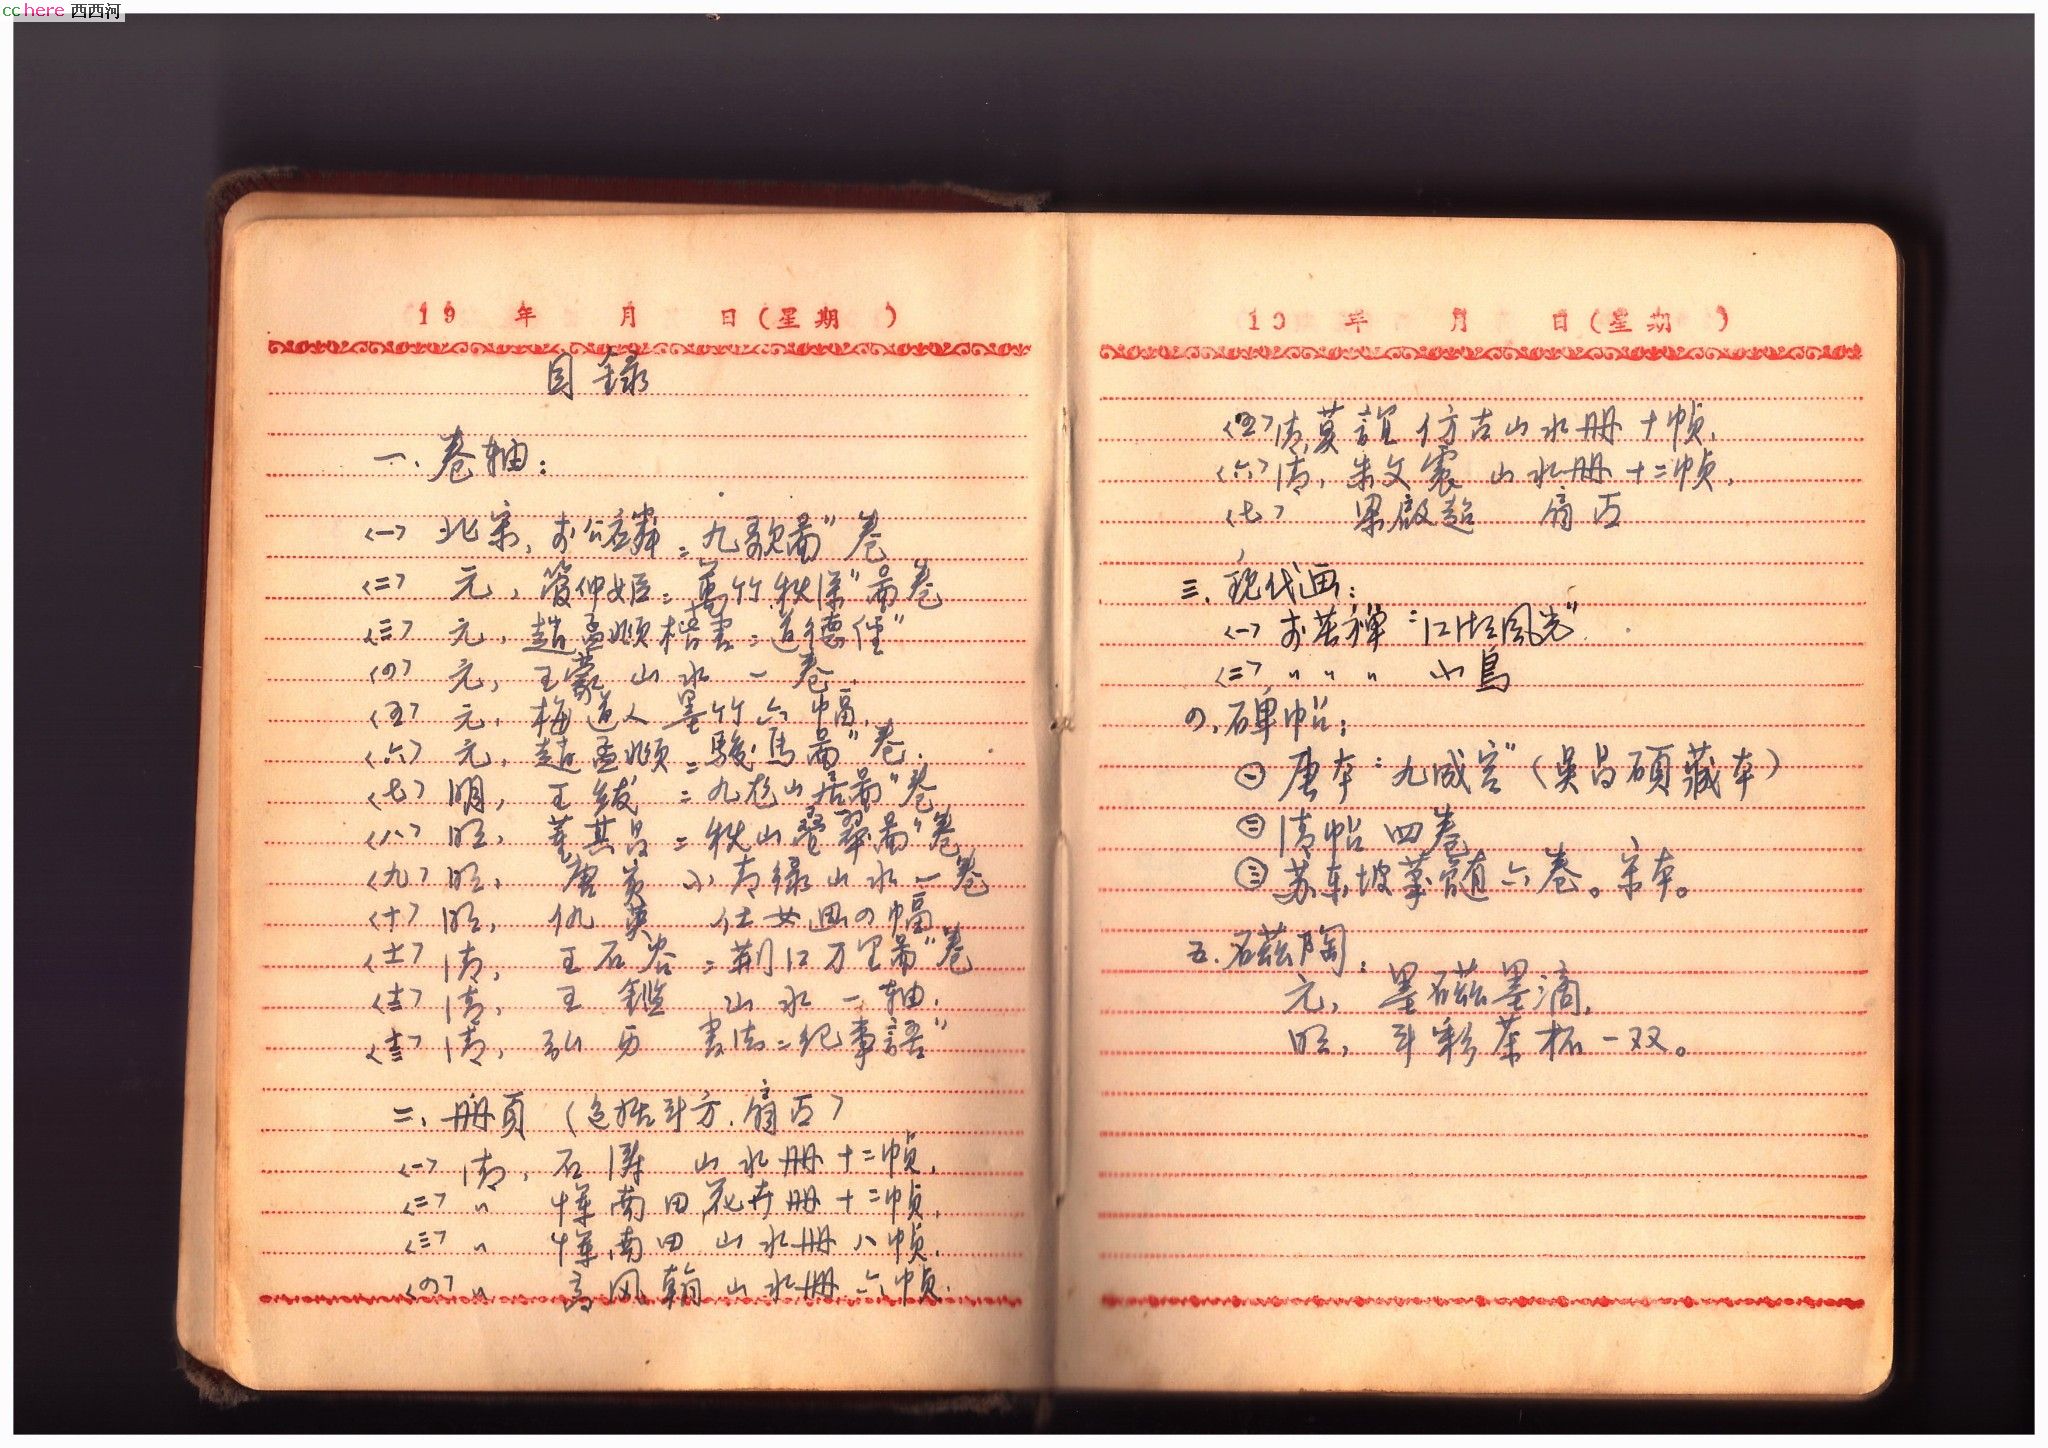 cchere 西西河
19 年 月 日(星期 )
目録
一、卷轴:
<一> 北宋, 李公麟="九歌圖"卷
<二> 元, 管仲姬="萬竹秋深"圖卷
<三> 元, 趙孟頫楷書="道德經"
<の> 元, 王蒙 山水一卷.
<五> 元, 梅道人 墨竹六幅.
<六> 元, 趙孟頫="駿馬圖"卷.
<七> 明, 王紱="九龙山居圖"卷
<八> 明, 董其昌="秋山 翠圖"卷
<九> 明, 唐寅 小青绿山水一卷
<十> 明, 仇英 仕女画の幅
<十一> 清, 王石谷="荆江万里圖"卷
<十二> 清, 王鑑 山水一轴.
<十三> 清, 弘历 書法="纪事語"
二、册頁 (包括斗方.扇面)
<一> 清, 石涛 山水册十二幀.
<二> 〃 惲南田 花卉册十二幀.
<三> 〃 惲南田 山水册八幀.
<の> 〃 高风翰 山水册六幀.
19 年 月 日(星期 )
<五> 清, 莫 仿古山水册十幀.
<六> 清, 朱文震 山水册十二幀.
<七> 梁啟超 扇面
三、現代画:
<一> 李苦禪="江 風光".
<二> 〃 〃 〃 小鳥
の、碑帖:
㊀ 唐本="九成宫"(吳昌碩藏本)
㊁ 清帖四卷
㊂ 苏东坡 髓六卷。宋本。
五.磁陶:
元, 墨磁墨滴.
明, 斗彩茶杯一双。